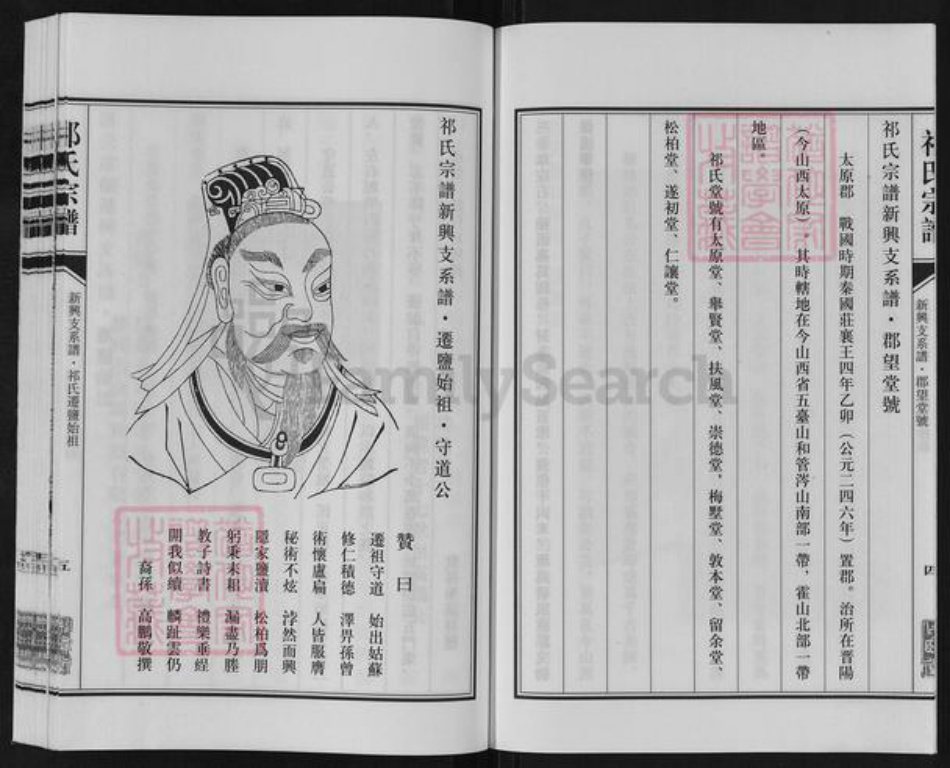 祁氏宗譜
新興支系譜・郡望堂號
四
祁氏宗譜新興支系譜・郡望堂號
太原郡　戰國時期秦國莊襄王四年乙卯（公元二四六年）置郡。治所在晋陽
（今山西太原）。其時轄地在今山西省五臺山和管涔山南部一帶，霍山北部一帶
地區。
祁氏堂號有太原堂、舉賢堂、扶風堂、崇德堂、梅墅堂、敦本堂、留余堂、
松柏堂、遂初堂、仁讓堂。
祁氏宗譜新興支系譜・遷鹽始祖・守道公
贊曰
遷祖守道　始出姑蘇
修仁積德　澤畀孫曾
術懷盧扁　人皆服膺
秘術不炫　浡然而興
隱家鹽瀆　松柏爲朋
躬秉耒耜　漏盡乃塍
教子詩書　禮樂垂繩
開我似續　麟趾雲仍
裔孫　高鵬敬撰
祁氏宗譜
新興支系譜・祁氏遷鹽始祖
五
FamilySearch